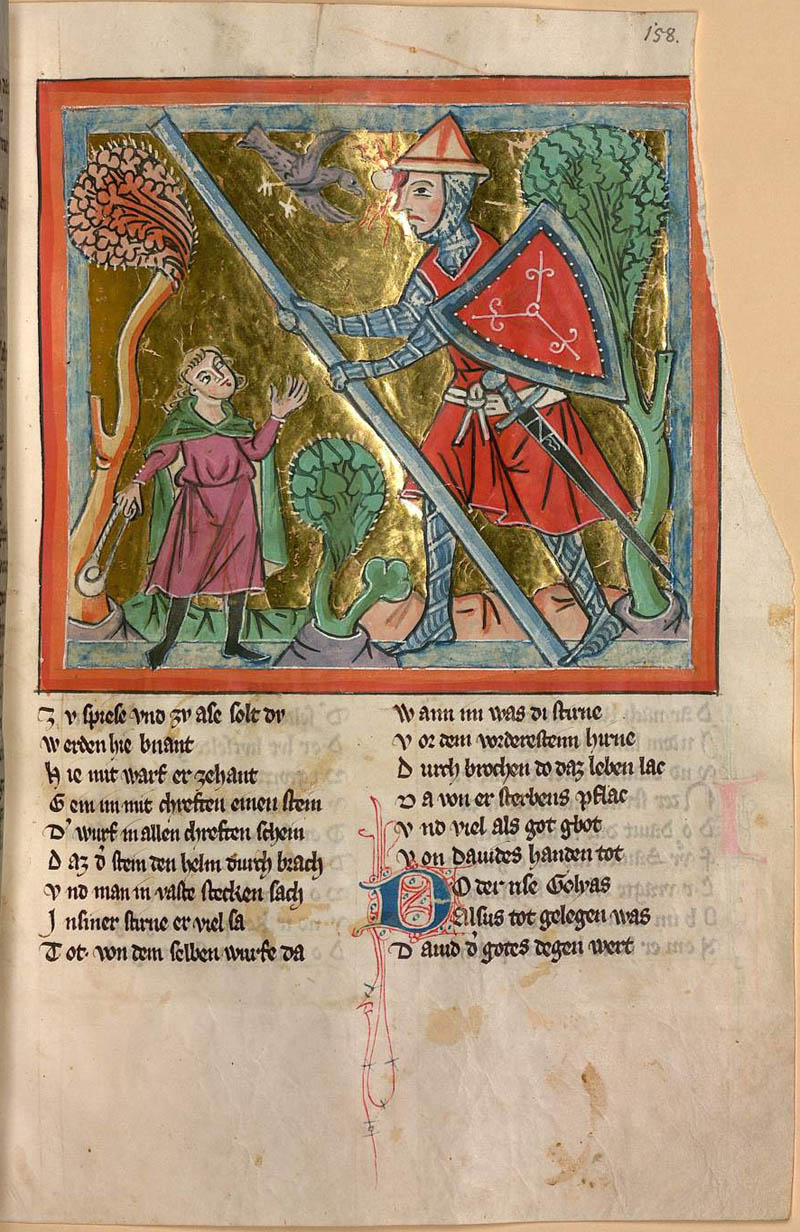 158.
Z v spiese vnd zv ase solt dv
W erden hie bnant
H ie mit warf er zehant
G ein im mit chreften einen stein
D' wurf in allen chreften schein
D az d' stein den helm durch brach
V nd man in vaste stecken sach
J n siner stirne er viel sa
T ot. von dem selben wurfe da
W ann im was di stirne
V or dem vorderestenn hirne
D urch brochen do daz leben lac
D a von er sterbens pflac
V nd viel als got gbot
V on dauides handen tot
DO der rise Golyas
Alsus tot gelegen was
D auid d' gotes degen wert